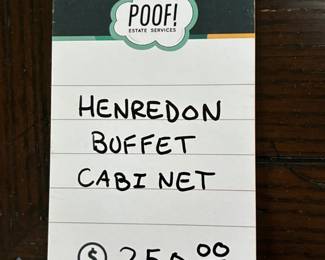 POOF!
ESTATE SERVICES
HENREDON
BUFFET
CABINET
$ 250 00